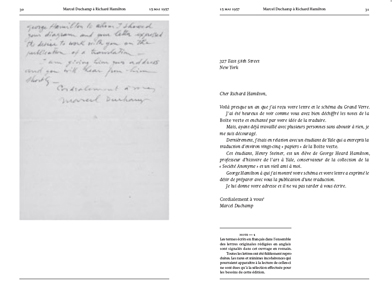 30 Marcel Duchamp à Richard Hamilton 15 mai 1957
george Hamilton to whom I showed
your diagram and your letter expressed
the desire to work with you on the
publication of a translation —
I am giving him your address
and you will hear from him
shortly —
Cordialement à vous
Marcel Duchamp
15 mai 1957 Marcel Duchamp à Richard Hamilton 31
327 East 58th Street
New York
Cher Richard Hamilton,
Voilà presque un an que j'ai reçu votre lettre et le schéma du Grand Verre.
J'ai été heureux de voir comme vous avez bien déchiffré les notes de la
Boîte verte et enchanté par votre idée de la traduire.
Mais, ayant déjà travaillé avec plusieurs personnes sans aboutir à rien, je
me suis découragé.
Dernièrement, j'étais en relation avec un étudiant de Yale qui a entrepris la
traduction d'environ vingt-cinq « papiers » de la Boîte verte.
Cet étudiant, Henry Steiner, est un élève de George Heard Hamilton,
professeur d'histoire de l'art à Yale, conservateur de la collection de la
« Société Anonyme » et un vieil ami à moi.
George Hamilton à qui j'ai montré votre schéma et votre lettre a exprimé le
désir de préparer avec vous la publication d'une traduction.
Je lui donne votre adresse et il ne va pas tarder à vous écrire.
Cordialement à vous
Marcel Duchamp
Les lettres écrits en français dans l'ensemble
des lettres originales rédigées en anglais
sont signalés dans cet ouvrage en romain.